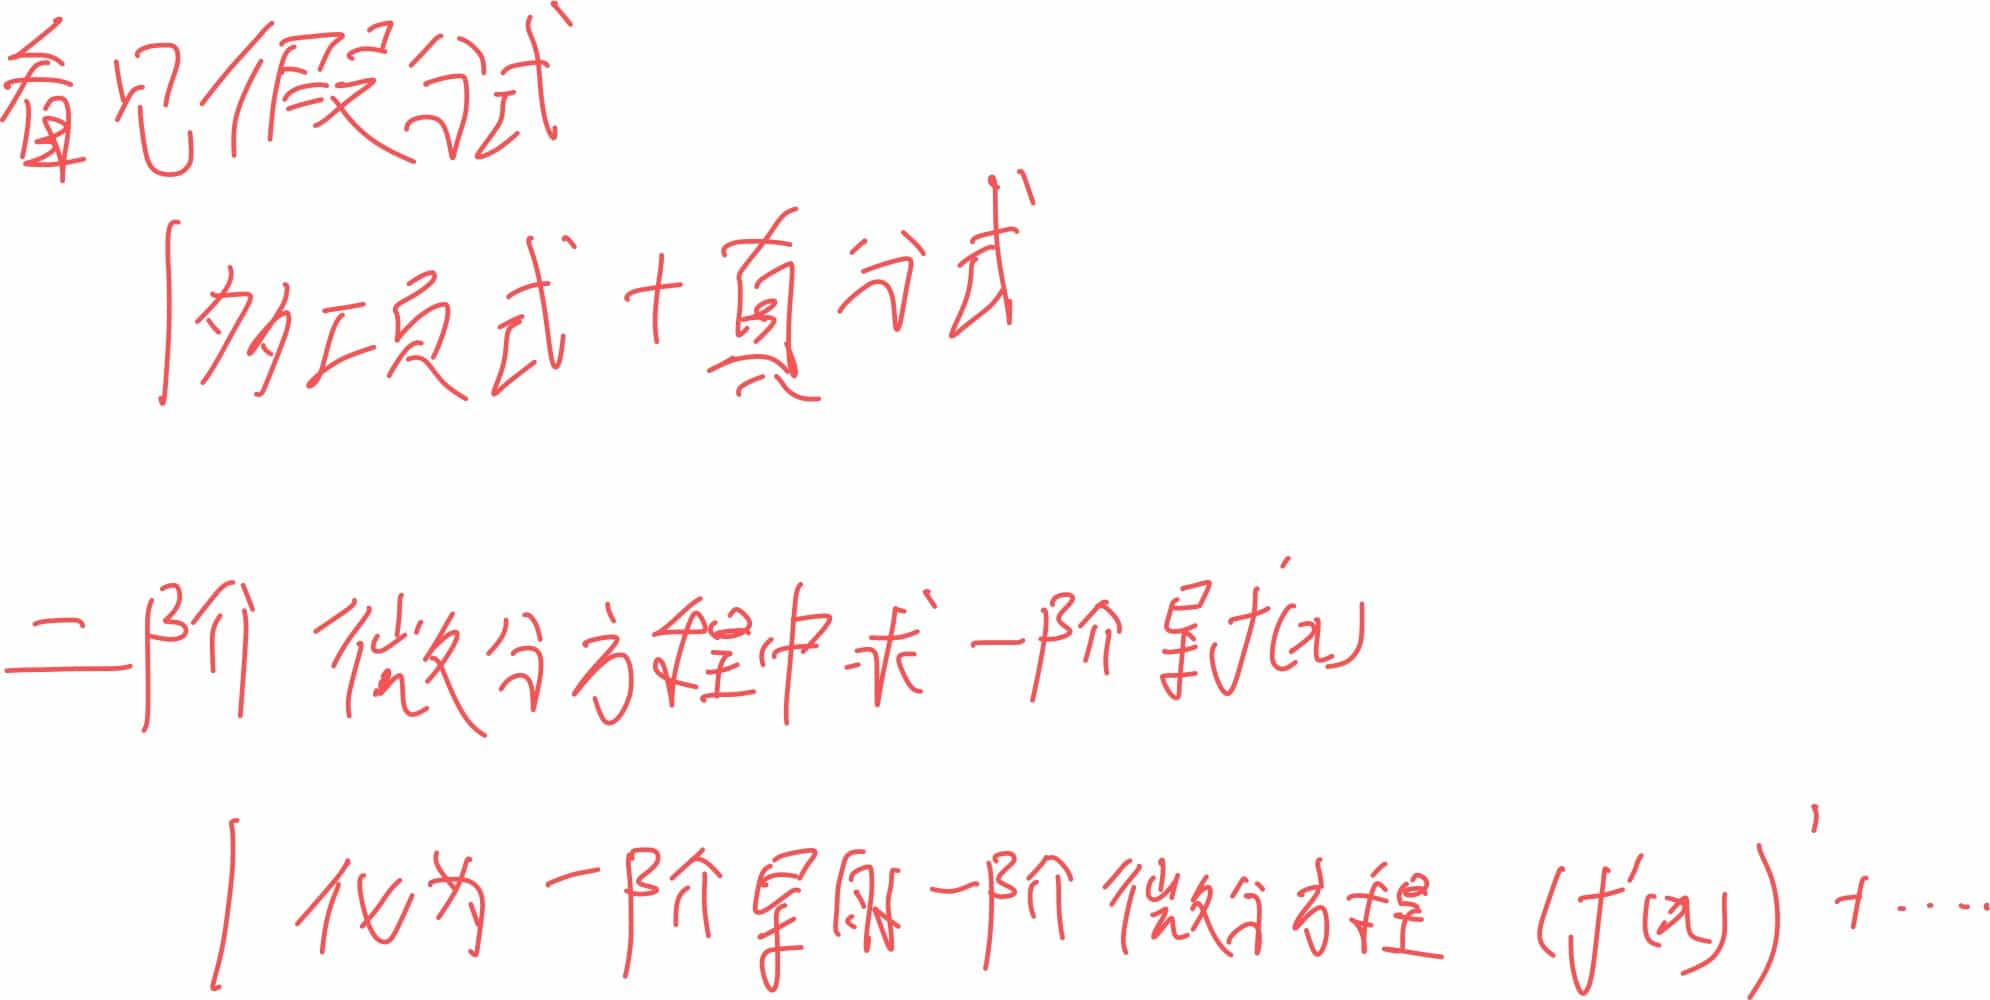 看见假分式
多项式+真分式
二阶微分方程中求一阶导f'(x)
化为一阶导的一阶微分方程 (f'(x))'+……